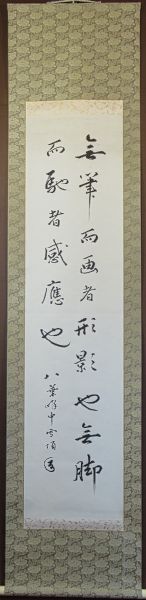 無筆而画者形影也無脚
而馳者感應也
八葉峰中雪頂